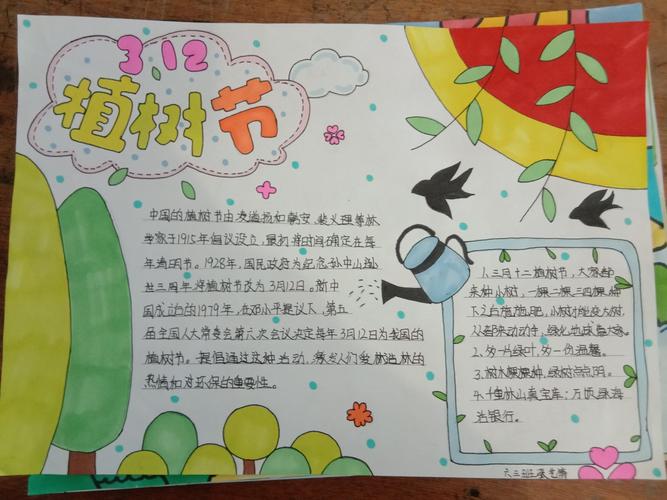 312
植树节
中国的植树节由凌道扬和韩安、裴义理等林
学家于1915年倡议设立，最初将时间确定在每
年清明节。1928年，国民政府为纪念孙中山逝
世三周年将植树节改为3月12日。新中
国成立后的1979年，在邓小平提议下，第五
届全国人大常委会第六次会议决定每年3月12日为我国的
植树节。提倡通过这种活动，激发人们爱林造林的
热情和对环保的重要性。
1.三月十二植树节，大家都
来种小树，一棵二棵三四棵，种
下之后施施肥，小树才能变大树，
从起来动动手，绿化地球靠大家。
2.多一片绿叶，多一份温馨。
3.树木棵棵种，绿树点点阴。
4.十里林山是宝库；万顷绿海
当银行。
六三班